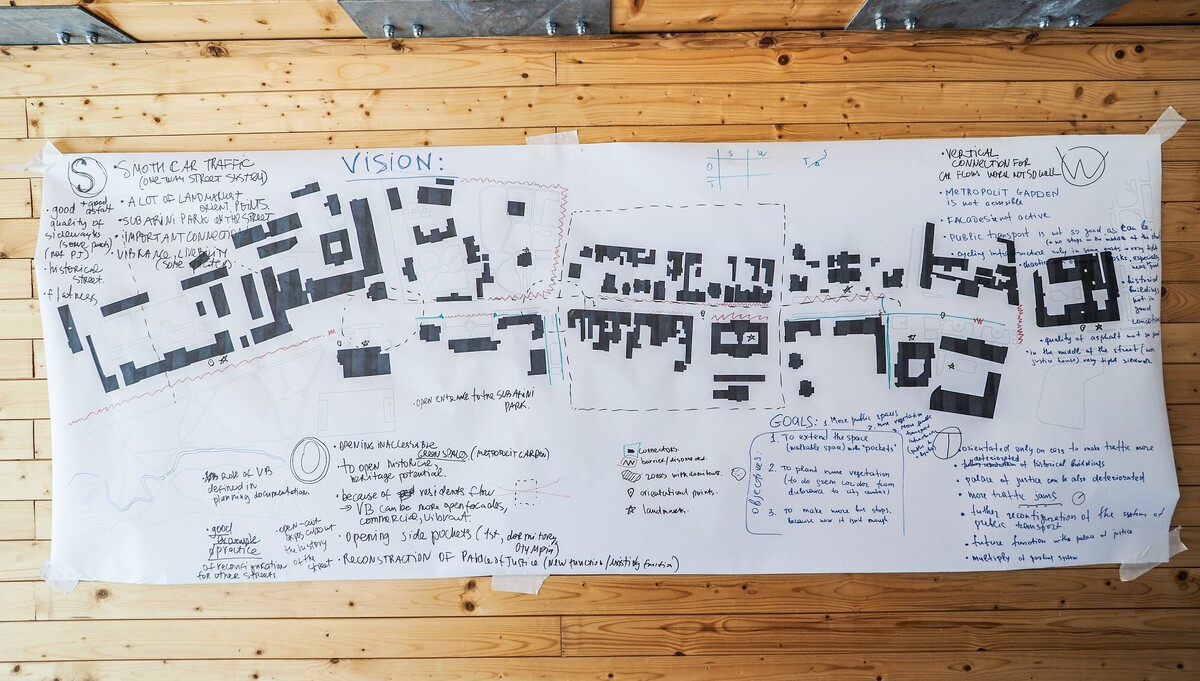 VISION:
S
SMOTH CAR TRAFFIC
(ONE-WAY STREET SYSTEM)
• A LOT OF LANDMARKS
ORIENT POINTS.
• SUBARINI PARK ON THE STREET
• IMPORTANT CONNECTIO
• VIBRANCE, LIVEBILITY
• good
quality of
sideways
(some parts)
(not PJ)
• historical
street.
• flatness
S W
O T
• VERTICAL
CONNECTION FOR
CAR FLOWS WORK NOT SO WELL
W
• METROPOLIT GARDEN
is not accessible
• FACADES NOT active
• PUBLIC transport is not so good as can be,
• historical
buildings
not in
good
condition
• quality of asphalt not so
• in the middle of the street (
justice house) very tight sidewalk
• OPEN ENTRANCE TO THE SUBARINI
PARK.
O
• OPENING INACCESSIBLE
GREEN SPACES (METROPOLIT GARDEN)
• to open historical
heritage potential.
• because of residents flow
→ VB can be more open facades,
commercial, vibrant.
• Opening side pockets (1st, dormitory,
Olympia)
• RECONSTRUCTION OF PALACE of Justice (new function/existing function)
Role of VB
defined in
planning documentation.
• good
example
of practice
of reconfiguration
for other streets.
the history
of the
street
connectors.
barrier/disconnect.
zones with dominants.
orientational points.
landmarks.
GOALS: 1. More public spaces
2. more vegetation
3. More public
transport
objectives:
1. To extend the space
(walkable space) with "pockets"
2. To plant more vegetation
(to do green corridor from
to city center)
3. To make more bus stops,
because now it isn't enough
T
• orientated only on cars to make traffic more
of historical buildings
• palace of justice can be also deteriorated
• more traffic jams
• futher reconfiguration of the system of
public transport
• future function with palace of justice
• multiply of parking system